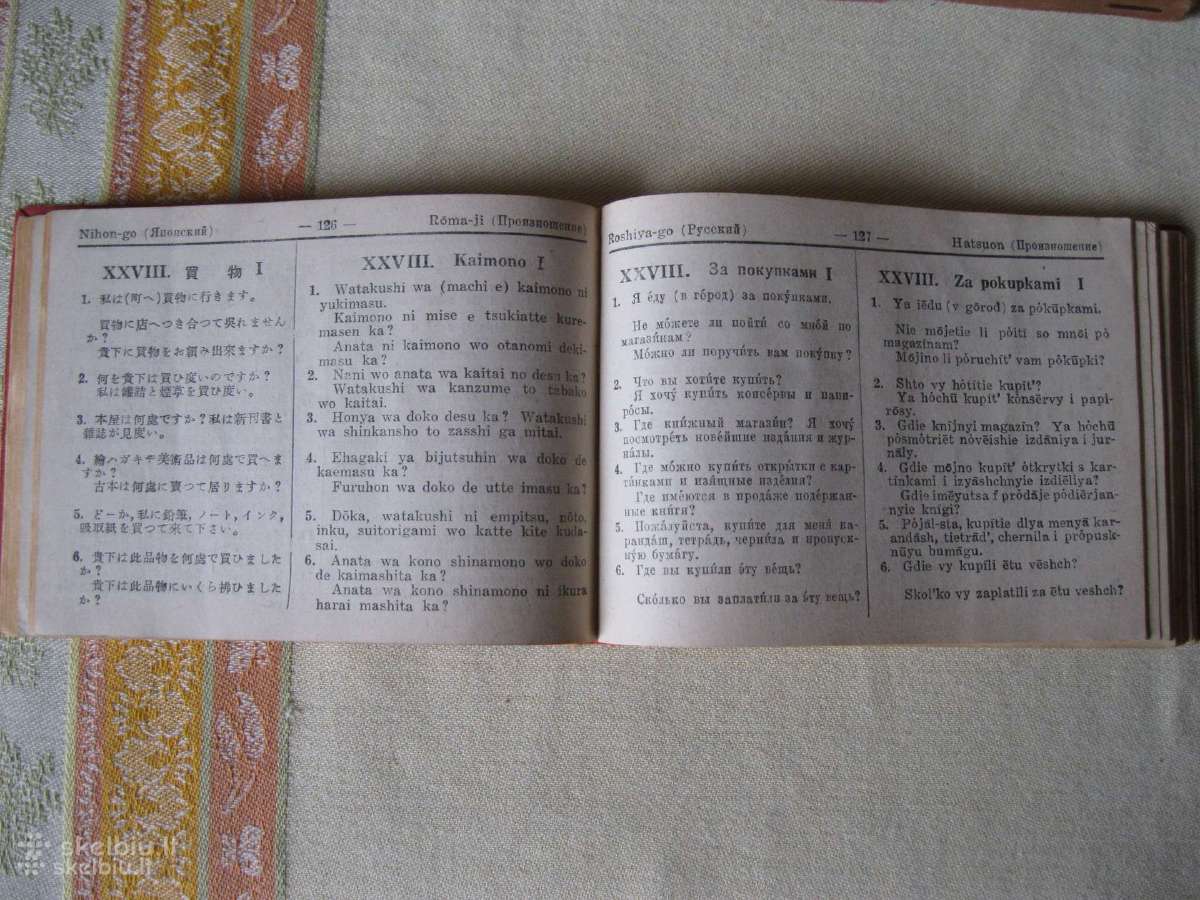 Nihon-go (Японский)
— 126 —
Rōma-ji (Произношение)
XXVIII. 買 物 I
1. 私は(町へ)買物に行きます。
買物に店へつき合つて呉れません
か?
貴下に買物をお頼み出來ますか?
2. 何を貴下は買ひ度いのですか?
私は罐詰と煙草を買ひ度い。
3. 本屋は何處ですか?私は新刊書と
雜誌が見度い。
4. 繪ハガキヤ美術品は何處で買へま
すか?
古本は何處に賣つて居りますか?
5. どーか,私に鉛筆,ノート,インク,
吸取紙を買つて來て下さい。
6. 貴下は此品物を何處で買ひました
か?
貴下は此品物にいくら拂ひました
か?
XXVIII. Kaimono I
1. Watakushi wa (machi e) kaimono ni
yukimasu.
Kaimono ni mise e tsukiatte kure-
masen ka?
Anata ni kaimono wo otanomi deki-
masu ka?
2. Nani wo anata wa kaitai no desu ka?
Watakushi wa kanzume to tabako
wo kaitai.
3. Honya wa doko desu ka? Watakushi
wa shinkansho to zasshi ga mitai.
4. Ehagaki ya bijutsuhin wa doko de
kaemasu ka?
Furuhon wa doko de utte imasu ka?
5. Dōka, watakushi ni empitsu, nōto,
inku, suitorigami wo katte kite kuda-
sai.
6. Anata wa kono shinamono wo doko
de kaimashita ka?
Anata wa kono shinamono ni ikura
harai mashita ka?
Roshiya-go (Русский)
— 127 —
Hatsuon (Произношение)
XXVIII. За покупками I
1. Я е́ду (в го́род) за поку́пками.
Не мо́жете ли пойти́ со мно́й по
магази́нам?
Мо́жно ли поручи́ть вам поку́пку?
2. Что вы хоти́те купи́ть?
Я хочу́ купи́ть консе́рвы и папи-
ро́сы.
3. Где кни́жный магази́н? Я хочу́
посмотре́ть нове́йшие изда́ния и жур-
на́лы.
4. Где мо́жно купи́ть откры́тки с кар-
ти́нками и изя́щные изде́лия?
Где име́ются в прода́же поде́ржан-
ные кни́ги?
5. Пожа́луйста, купи́те для меня́ ка-
ранда́ш, тетра́дь, черни́ла и пропуск-
ну́ю бума́гу.
6. Где вы купи́ли э́ту ве́щь?
Ско́лько вы заплати́ли за э́ту вещь?
XXVIII. Za pokupkami I
1. Ya iēdu (v gōrod) za pòkūpkami.
Nie mōjetie li pòitī so mnōi pò
magazīnam?
Mōjino li pòruchīt' vam pòkūpki?
2. Shto vy hòtītie kupīt'?
Ya hòchū kupīt' kònsērvy i papi-
rōsy.
3. Gdie knījnyi magazīn? Ya hòchū
pòsmòtriēt nòvēishie izdāniya i jur-
nāly.
4. Gdie mōjno kupīt' òtkrytki s kar-
tīnkami i izyāshchnyie izdiēliya?
Gdie imēyutsa f pròdāje pòdiērjan-
nyie knigi?
5. Pòjāl-sta, kupītie dlya menyā kar-
andāsh, tietrād', chernila i pròpusk-
nūyu bumāgu.
6. Gdie vy kupīli ētu vēshch?
Skol'ko vy zaplatīli za ētu veshch?
skelbiu.lt
skelbiu.lt